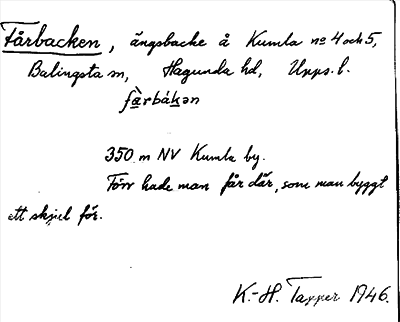 Fårbacken, ängsbacke å Kumla no 4 och 5,
Balingsta sn, Hagunda hd, Upps. l.
fà̱rbáḵən
350 m NV Kumla by.
Förr hade man får där, som man byggt
ett skjul för.
K.-H. Tapper 1946.